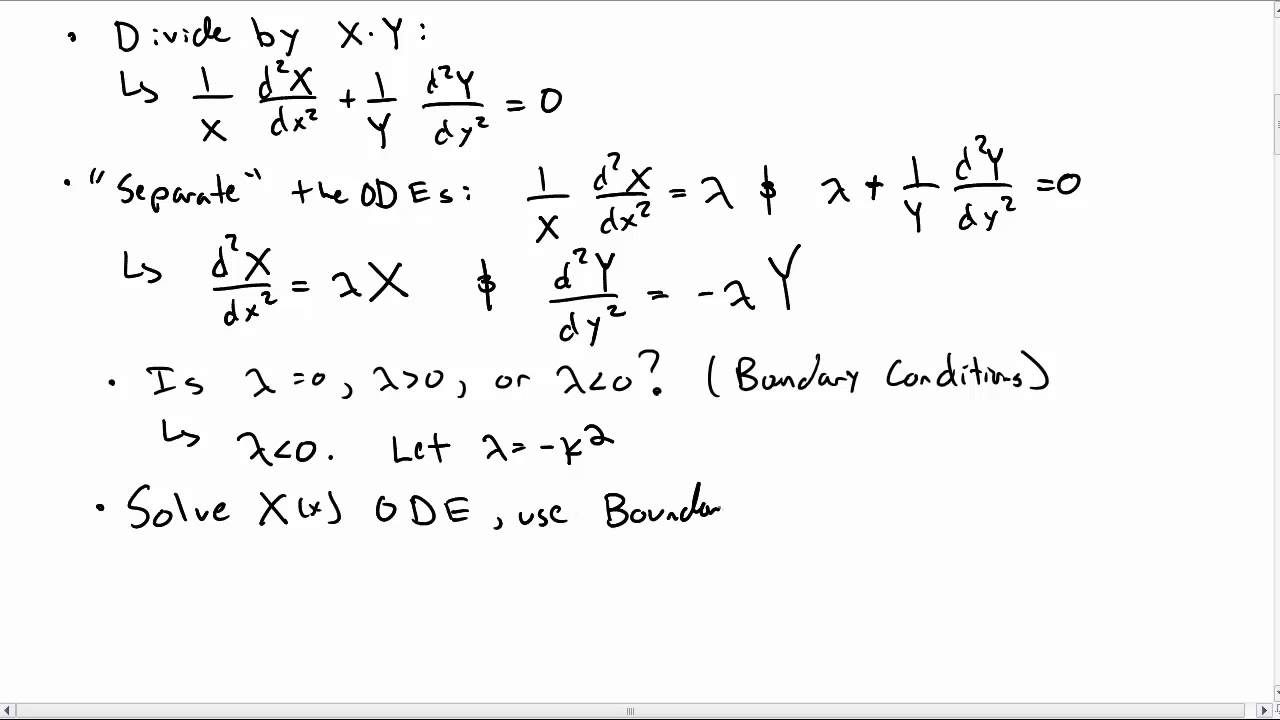 • Divide by X·Y:
↳ 1/X d²X/dx² + 1/Y d²Y/dy² = 0
• "Separate" the ODEs: 1/X d²X/dx² = λ & λ + 1/Y d²Y/dy² = 0
↳ d²X/dx² = λX & d²Y/dy² = -λY
• Is λ=0, λ>0, or λ<0? (Boundary Conditions)
↳ λ<0. Let λ=-k²
• Solve X(x) ODE, use Boundar